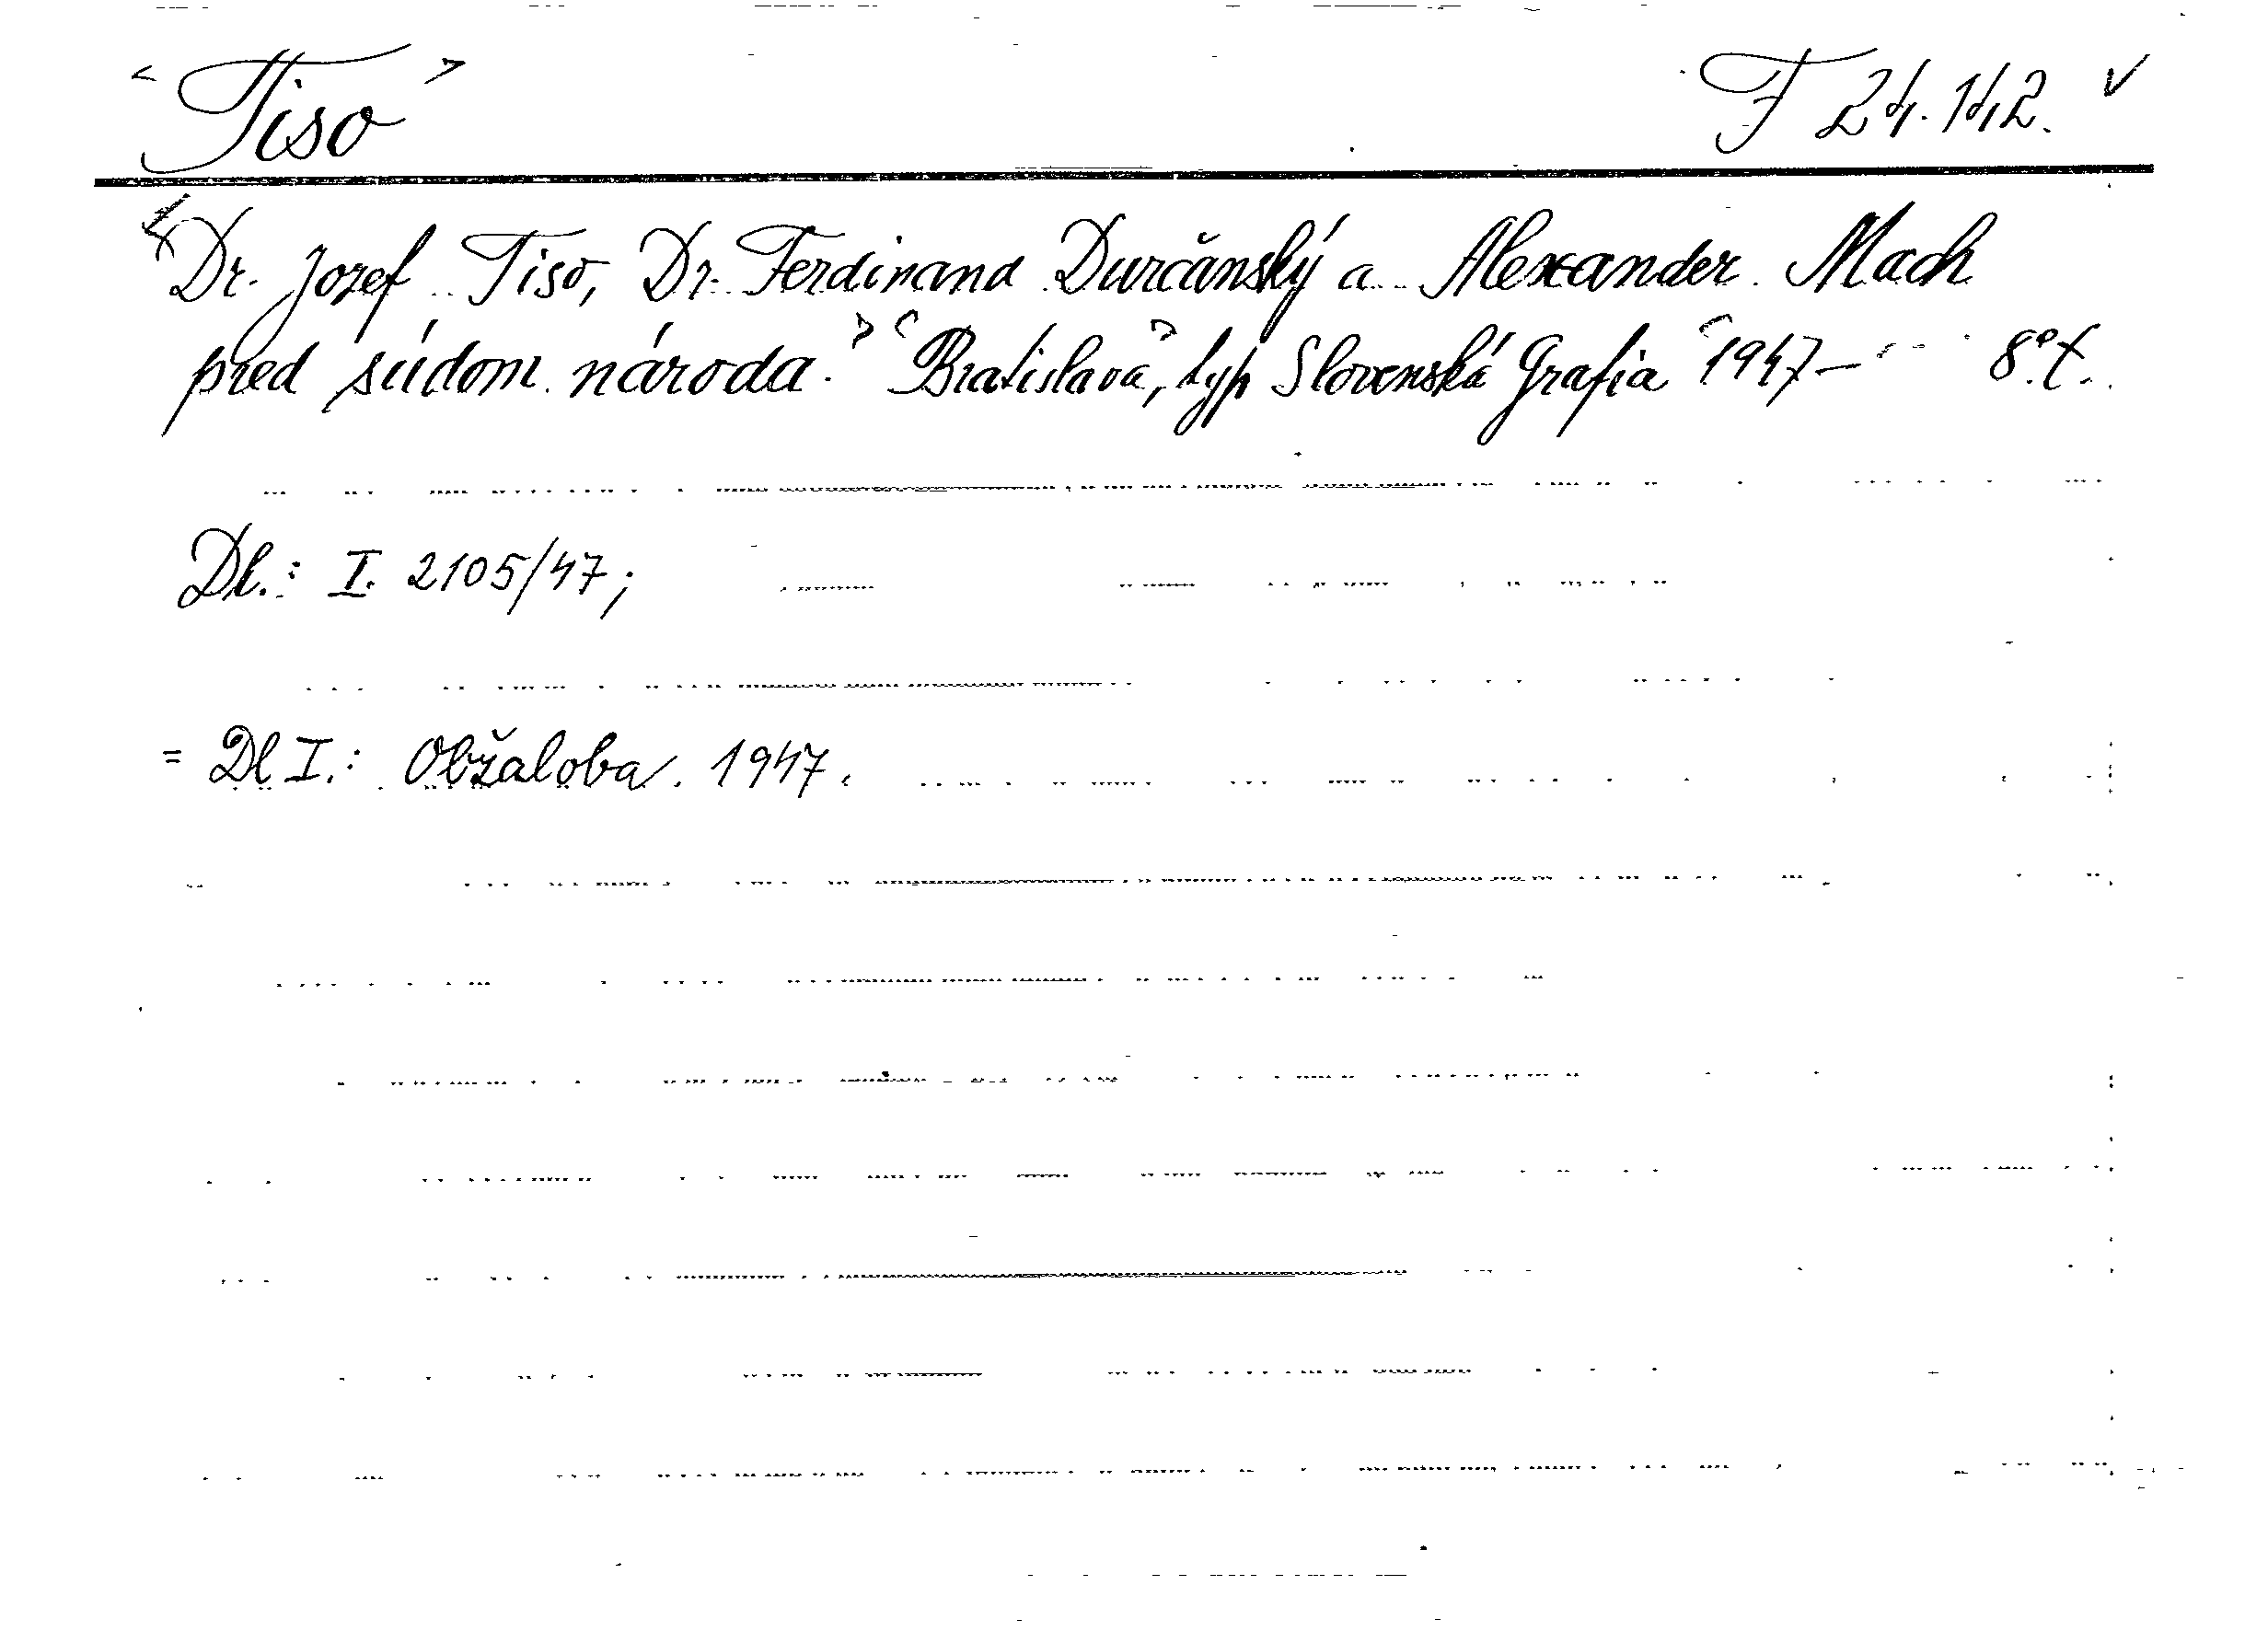 <Tiso> F 24.142. ✓
Dr. Jozef Tiso, Dr. Ferdinand Ďurčanský a Alexander Mach
pred súdom národa. Bratislava, typ Slovenská Grafia 1947– 8°.
Dl.: I. 2105/47;
= Dl I.: Obžaloba. 1947.